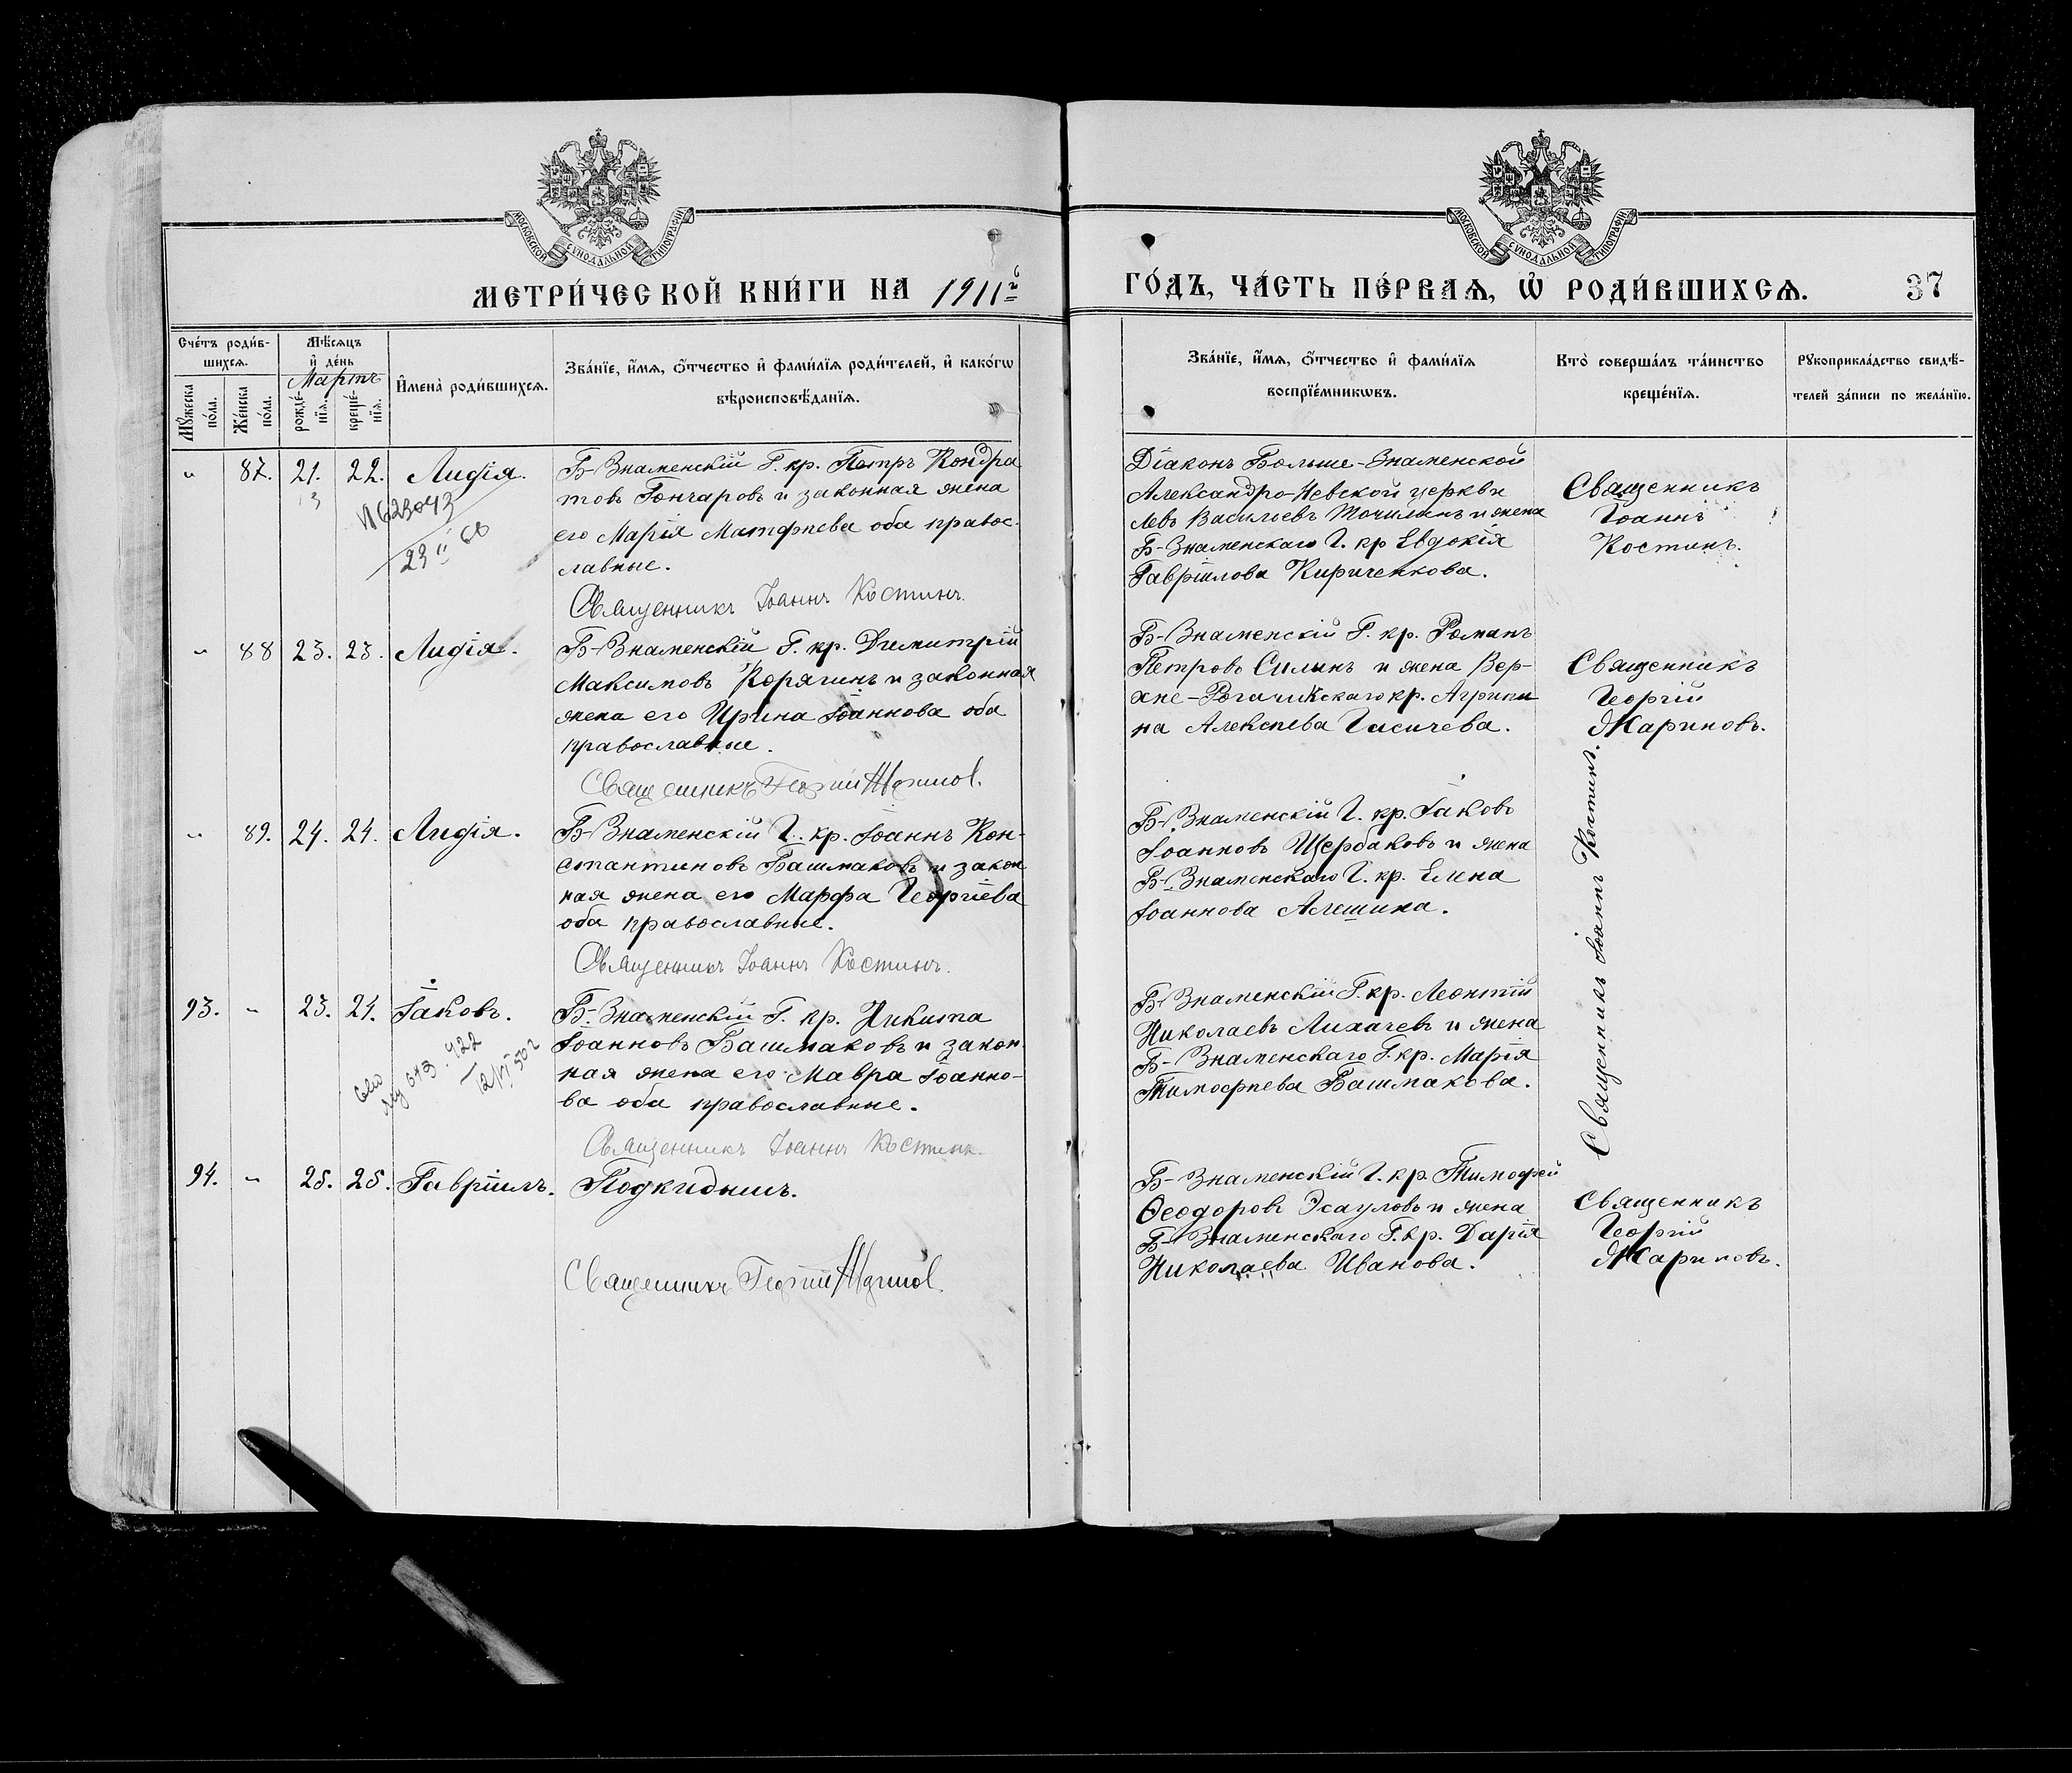 МОСКОВСКОЙ СУНОДАЛЬНОЙ ТИПОГРАФІИ
МОСКОВСКОЙ СУНОДАЛЬНОЙ ТИПОГРАФІИ
МЕТРИ́ЧЕСКОЙ КНИ́ГИ НА 1911й
ГО́ДЪ, ЧА́СТЬ ПЕ́РВАѦ, Ѡ҆ РОДИ́ВШИХСѦ.
37
Сче́тъ роди́в-
шихсѧ.
Мꙋ́жеска по́ла.
Же́нска по́ла.
Мѣ́сяцъ
и҆ де́нь
Мартъ
рожде́-нїѧ.
креще́-нїѧ.
И҆мена̀ роди́вшихсѧ.
Зва́нїе, и҆́мѧ, ѻ҆́тчество и҆ фами́лїѧ роди́телей, и҆ како́гѡ
вѣроисповѣ́данїѧ.
Зва́нїе, и҆́мѧ, ѻ҆́тчество и҆ фами́лїѧ
воспрїе́мникѡвъ.
Кто̀ соверша́лъ та́инство
креще́нїѧ.
Рꙋкоприкла́дство свидѣ́-
телей за́писи по жела́нїю.
" 87. 21. 22. Лидія.
N623043
23 II 60
Б-Знаменскій Г. кр. Петръ Кондра
товъ Гончаровъ и законная жена
его Марія Матѳиева оба правос-
лавные.
Священникъ Іоаннъ Костинъ.
Діаконъ Больше-Знаменской
Александро-Невской церкви
Левъ Васильевъ Точилинъ и жена
Б-Знаменскаго Г. кр Евдокія
Гавріилова Кириченкова.
Священникъ
Іоаннъ
Костинъ.
" 88 23. 23. Лидія.
Б-Знаменскій Г. кр. Димитрій
Максимовъ Корягинъ и законная
жена его Ирина Іоаннова оба
православные.
Священникъ Георгій Жариновъ.
Б-Знаменскій Г. кр. Романъ
Петровъ Силинъ и жена Вер-
хне-Рогачикскаго кр. Агрипи
на Алексѣева Гисичева.
Священникъ
Георгій
Жариновъ.
" 89. 24. 24. Лидія.
Б-Знаменскій Г. кр. Іоаннъ Кон-
стантиновъ Башмаковъ и закон
ная жена его Марфа Георгіева
оба православные.
Священникъ Іоаннъ Костинъ.
Б-Знаменскій Г. кр. Іаковъ
Іоанновъ Щербаковъ и жена
Б-Знаменскаго Г. кр. Елена
Іоаннова Алешина.
Священникъ Іоаннъ Костинъ.
93. " 23. 24. Іаковъ.
Б-Знаменскій Г. кр. Никита
Іоанновъ Башмаковъ и закон
ная жена его Мавра Іоанно-
ва оба православные.
Священникъ Іоаннъ Костинъ.
Б-Знаменскій Г. кр. Леонтій
Николаевъ Лихачевъ и жена
Б-Знаменскаго Г. кр. Марія
Тимоѳиева Башмакова.
94. " 25. 25. Гавріилъ. Подкидышъ.
Священникъ Георгій Жариновъ.
Б-Знаменскій Г. кр. Тимоѳей
Ѳеодоровъ Эсауловъ и жена
Б-Знаменскаго Г. кр. Дарія
Николаева Иванова.
Священникъ
Георгій
Жариновъ.